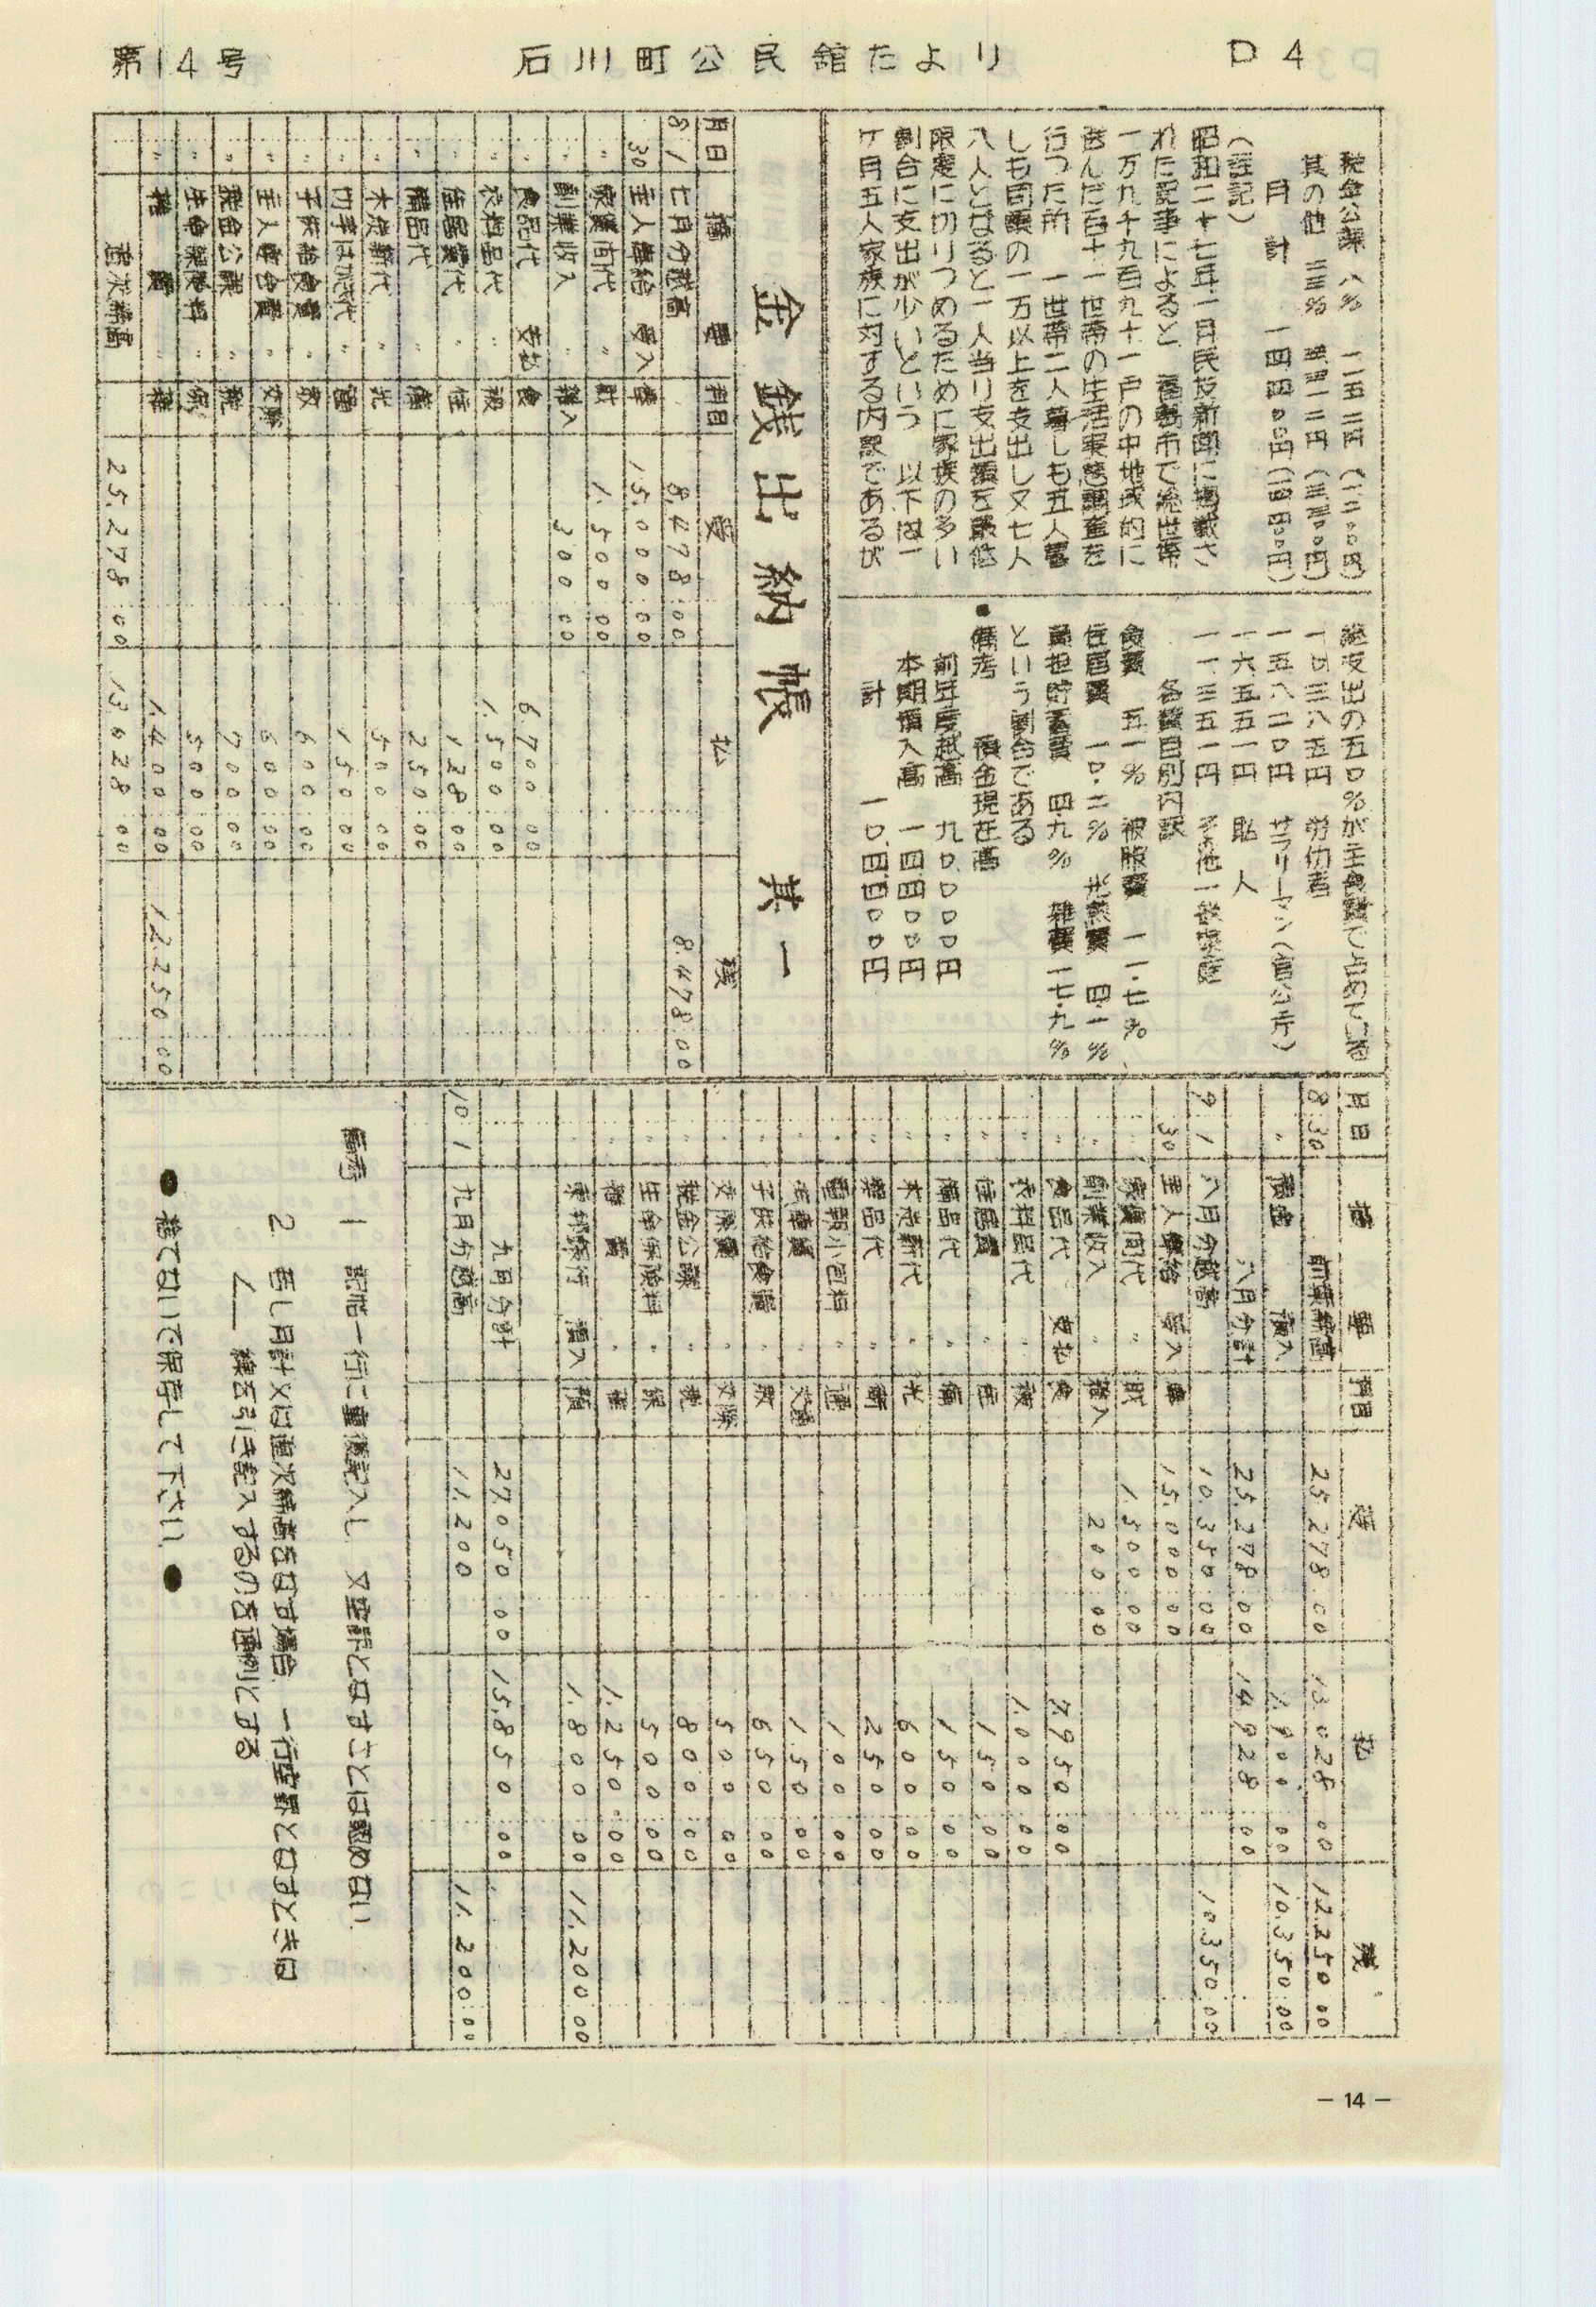 第14号
石川町公民館たより
P4
税金公課 八% 一一五二円(一二〇〇円)
其の他 三三%
月計 一四四〇〇円(一四四〇〇円)
(註記)
昭和二十七年一月民友新聞に掲載さ
れた記事によると、福島市で総世帯
一万九千九百九十一戸の中地域的に
選んだ百十一世帯の生活実態調査を
行つた所 一世帯二人暮しも五人暮
しも同額の一万以上を支出し又七人
八人となると一人当り支出額を最低
限度に切りつめるために家族の多い
割合に支出が少いという 以下は一
ケ月五人家族に対する内訳であるが
総支出の五〇%が主食費で占めている
一〇三八五円 労仂者
一五八二〇円 サラリーマン(官公庁)
一六五五一円
一一三五一円 その他一般家庭
各費目別内訳
食費 五一% 被服費 一一・七%
住居費 一〇・二% 光熱費 四・一%
負担貯蓄費 四・九% 雑費一七・九%
という割合である
●備考 預金現在高
前年度越高 九〇〇〇〇円
本期預入高 一四四〇〇円
計 一〇四四〇〇円
金銭出納帳 其一
月日 摘要 科目 受 払 残
8 1 七月分越高 8.478:00 8.478:00
30 主人俸給 受入 俸 15.000:00
〃 家賃間代 〃 財 1.500 00
〃 副業収入 〃 雑入 300 00
〃 食品代 支払 食 6.700 00
〃 衣料品代 〃 被 1.500:00
〃 住居費代 〃 住 128:00
〃 備品代 〃 備 250:00
〃 木炭薪代 〃 光 500 00
〃 切手はがき代 〃 通 150:00
〃 子供給食費 教 600:00
〃 主人宴会費 〃 交際 600:00
〃 税金公課 〃 税 700 00
〃 生命保険料 〃 保 500:00
〃 雑費 〃 雑 1.400:00 12250:00
逓次締高 25.278:00 13028:00
月日 摘要 科目 受 払 残
8:30 前葉締高 25.278.00 13.028 00 12.250 00
〃 預金 預入 1.900:00 10.350:00
八月分計 25.278:00 14.928:00
9 1 八月分越高 10.350:00 10.350:00
30 主人俸給 受入 俸 15.000:00
家賃間代 〃 財 1.500.00
〃 副業収入 〃 雑入 200:00
〃 食品代 支払 食 7.950:00
〃 衣料品代 〃 被 1.000:00
〃 住居費 〃 住 150:00
〃 備品代 〃 備 150:00
〃 木炭薪代 〃 光 600:00
〃 〃 250:00
〃 〃 通 100:00
〃 〃 交通 150:00
〃 子供給食費 〃 教 650:00
〃 交際費 〃 交際 500 00
〃 税金公課 〃 税 800:00
〃 生命保険料 〃 保 500:00
〃 雑費 〃 雑 1.250:00
東邦銀行 預入 預 1.800:00 11.200:00
九月分計 27.050:00 15.850:00
10 1 九月分越高 11.200 11.200:00
備考 1 記帳一行に重複記入し 又空野となすことは認めない
2 若し月計又は逓次締高をなす場合、一行空野となすときは
線を引き記入するのを通例とする
●捨てないで保存して下さい●
- 14 -